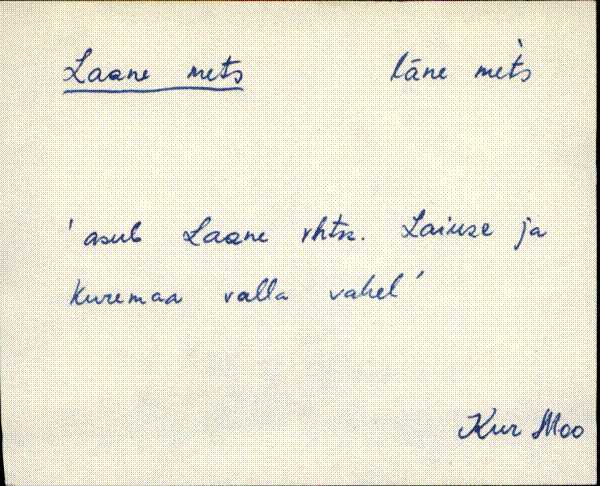 Laane mets lāne met̀s
'asub Laane vhtn. Laiuse ja
Kuremaa valla vahel'
Kur Moo